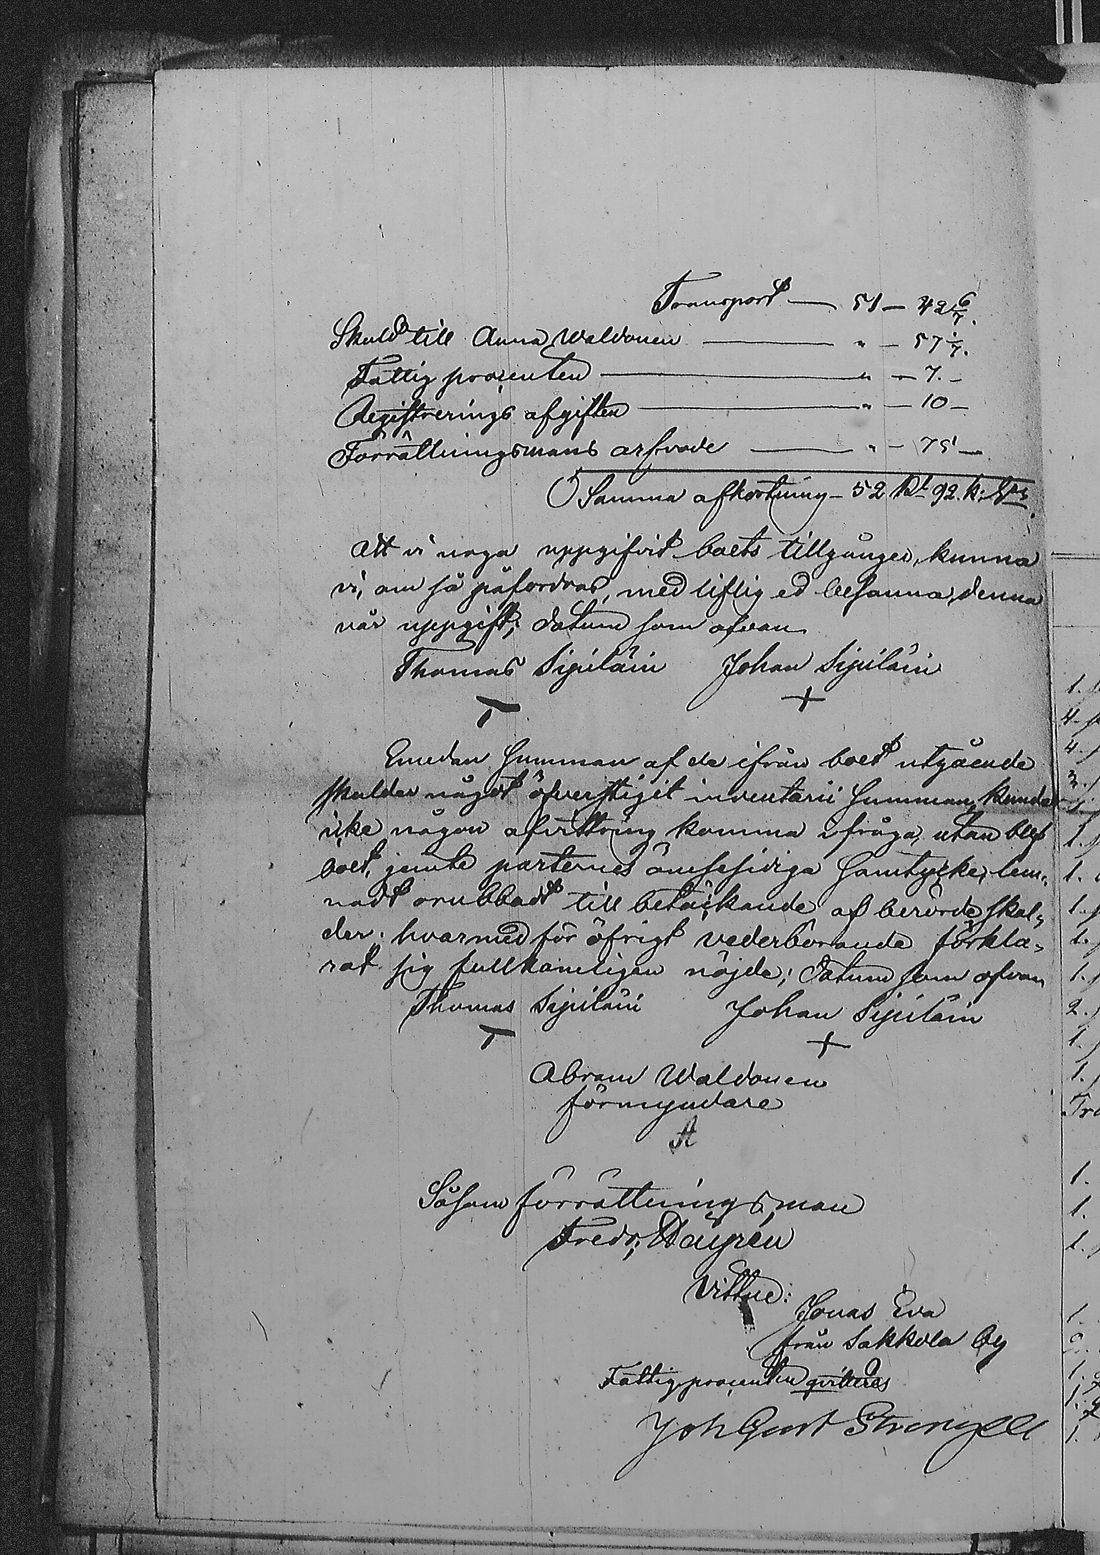 Transport — 51 — 42 6/7.
Skuld till Anna Waldonen — " — 57 1/7.
Fattig procenten — " — 7. —
Registrerings afgiften — " — 10 —
Förrättningsmans arfvode — " — 75 —
Summa afkortning — 52 Rbl 92 k: Sr.
Att vi noga uppgifvit boets tillgångar, kunna
vi, om så påfordras, med liflig ed besanna, denna
vår uppgift; datum som ofvan
Thomas Sipiläin Johan Sipiläin
Emedan Summan af de ifrån boet utgående
skulder något öfverstigit inventarii Summan, kunde
icke någon afvittring komma i fråga, utan blef
boet, jemte parternes ömsesidiga samtycke, lem-
nadt orubbadt till betäckande af berörde skul-
der: hvarmed för öfrigt vederbörande förkla-
rat sig fullkomligen nöjde; datum som ofvan
Thomas Sipiläin Johan Sipiläin
Abram Waldonen
förmyndare
Såsom förrättningsman
Fredr:
Vittne:
Jonas Eva
från Sakkola by
Fattigprocenten qvitteras
Joh Gust Strengell
1.
4.
4.
1.
1.
1.
1.
1.
2.
1.
1.
Tra
1.
1.
1.
1.